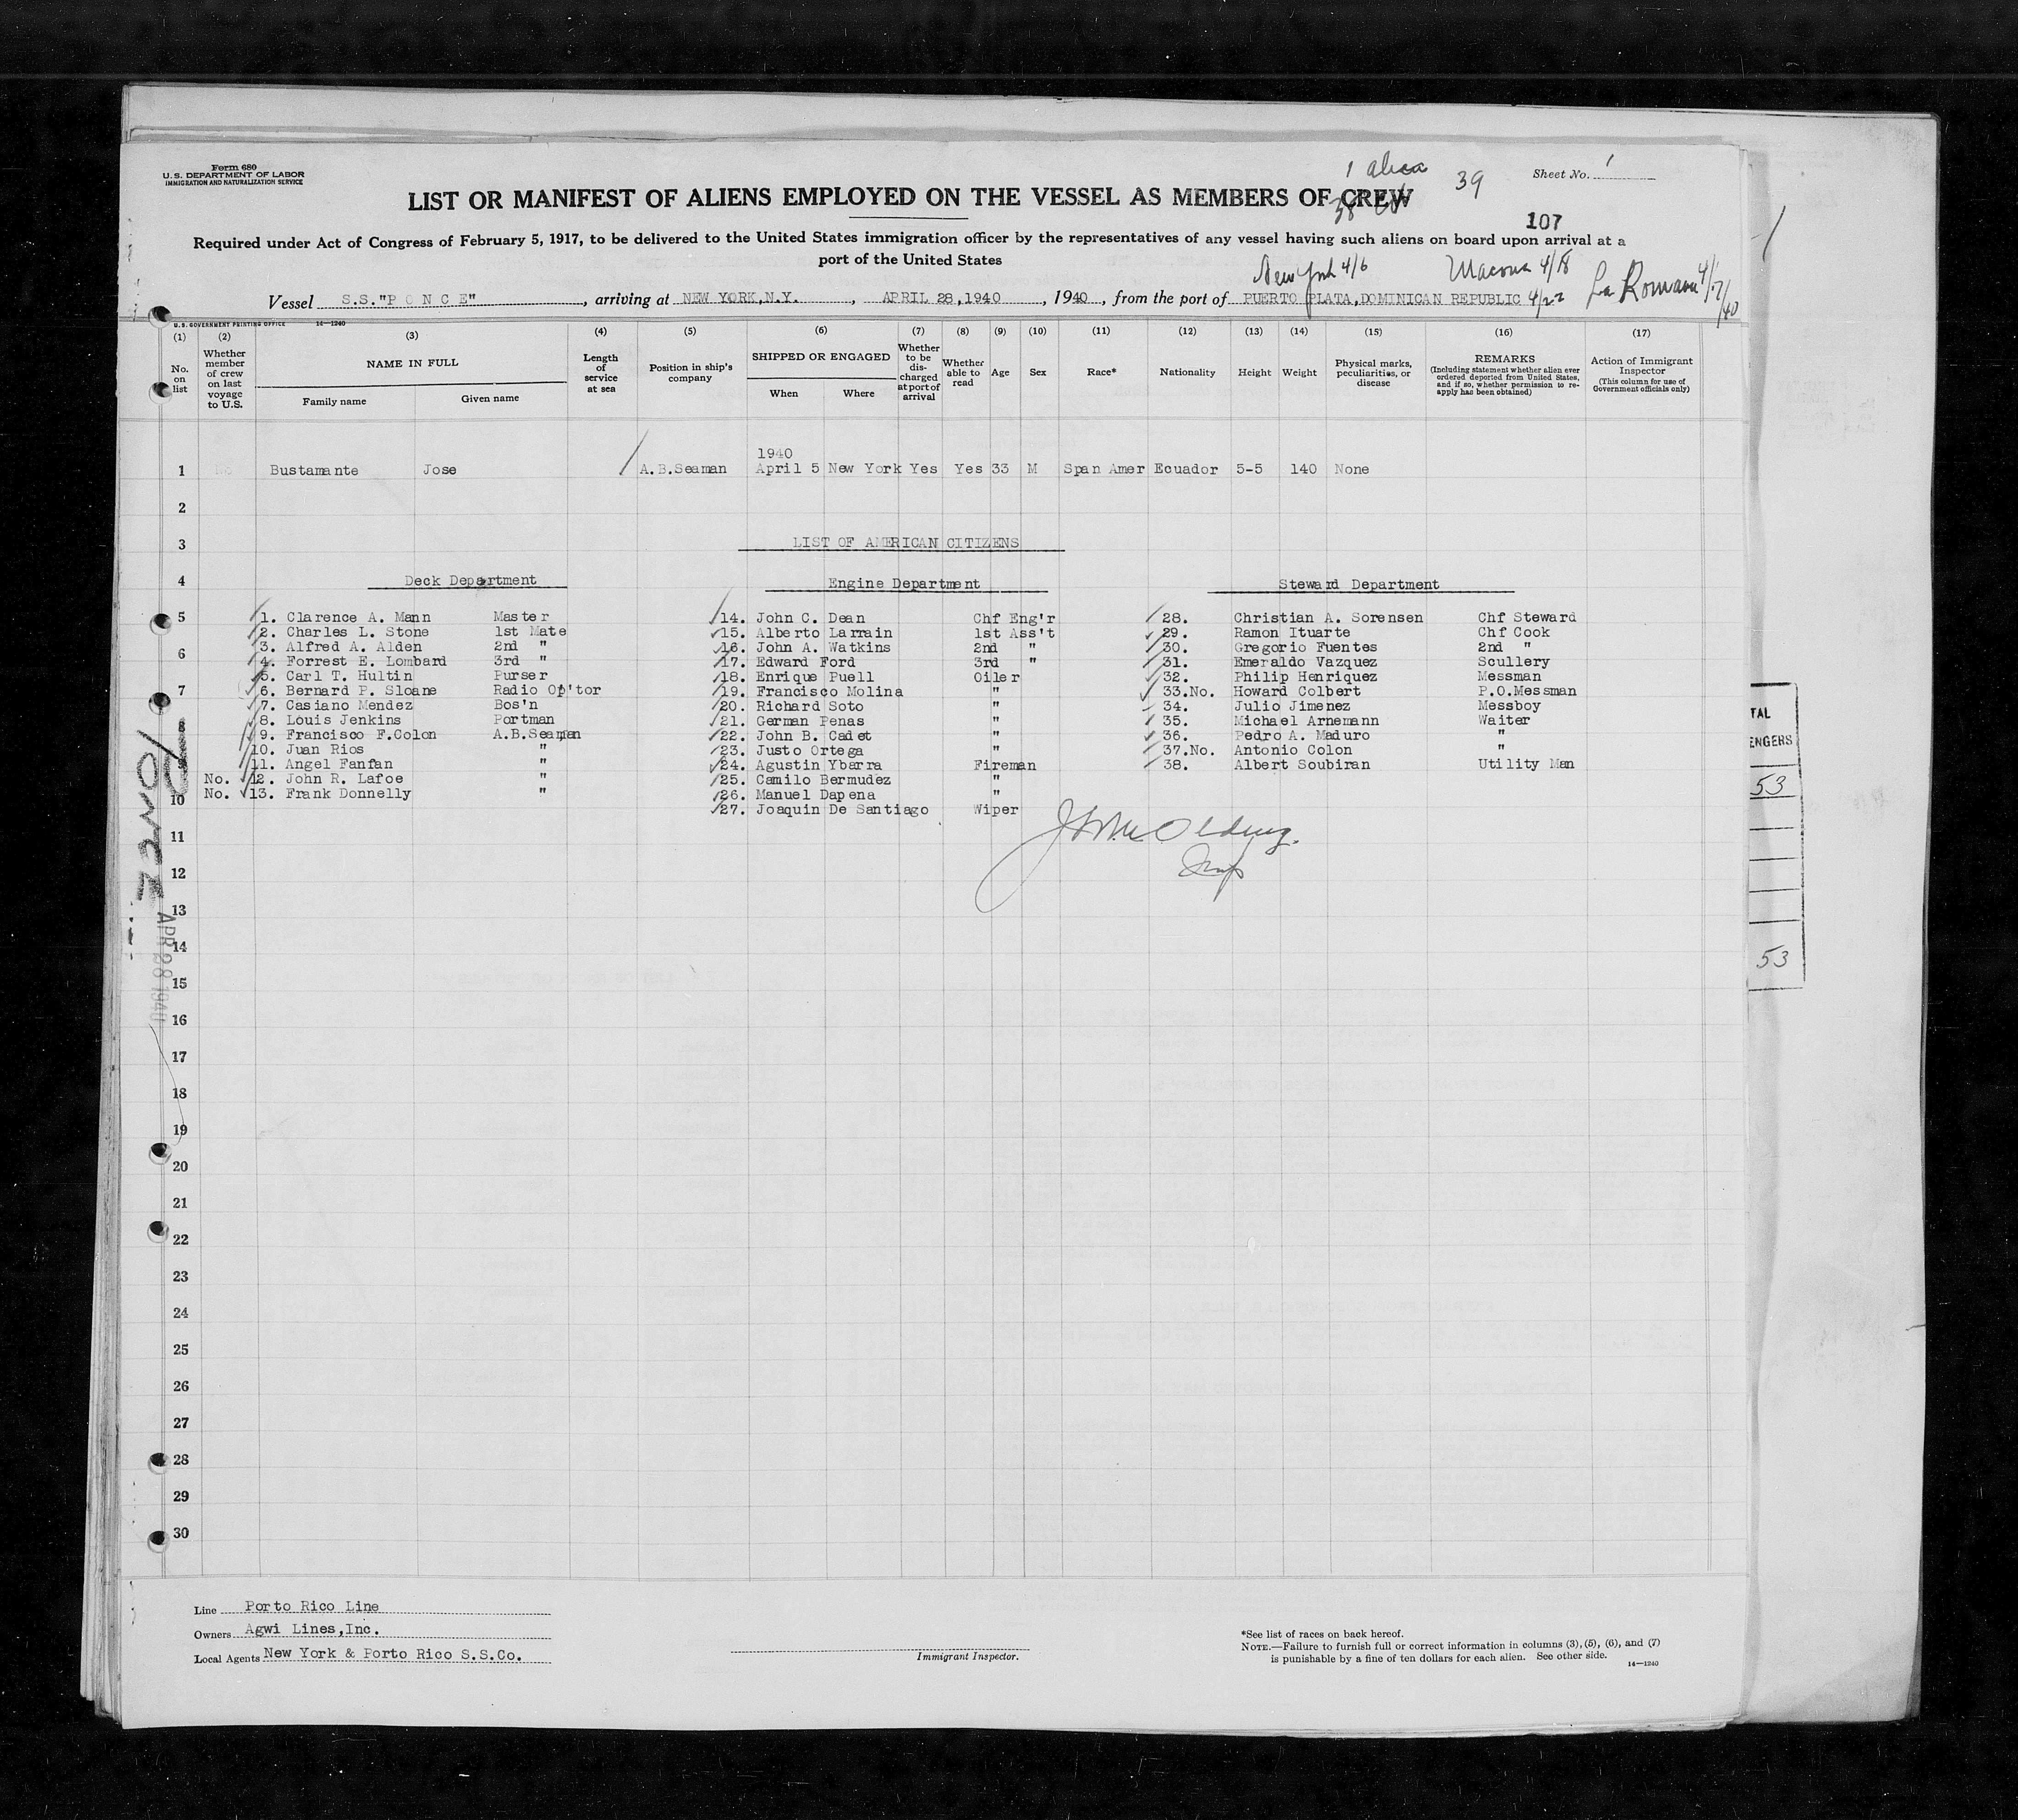 Form 680
U. S. DEPARTMENT OF LABOR
IMMIGRATION AND NATURALIZATION SERVICE
1 alien
39
Sheet No. 1
LIST OR MANIFEST OF ALIENS EMPLOYED ON THE VESSEL AS MEMBERS OF CREW
38
107
Required under Act of Congress of February 5, 1917, to be delivered to the United States immigration officer by the representatives of any vessel having such aliens on board upon arrival at a
port of the United States
New York 4/6 Macoris 4/18 La Romana
Vessel S.S."P O N C E", arriving at NEW YORK,N.Y., APRIL 28,1940, 1940, from the port of PUERTO PLATA,DOMINICAN REPUBLIC 4/22
U. S. GOVERNMENT PRINTING OFFICE 14—1240
(1) (2) (3) (4) (5) (6) (7) (8) (9) (10) (11) (12) (13) (14) (15) (16) (17)
No. on list
Whether member of crew on last voyage to U.S.
NAME IN FULL
Family name Given name
Length of service at sea
Position in ship's company
SHIPPED OR ENGAGED
When Where
Whether to be discharged at port of arrival
Whether able to read
Age
Sex
Race*
Nationality
Height
Weight
Physical marks, peculiarities, or disease
REMARKS
(Including statement whether alien ever ordered deported from United States, and if so, whether permission to reapply has been obtained)
Action of Immigrant Inspector
(This column for use of Government officials only)
1940
1 Bustamante Jose A.B.Seaman April 5 New York Yes Yes 33 M Span Amer Ecuador 5-5 140 None
2
3 LIST OF AMERICAN CITIZENS
4 Deck Department Engine Department Steward Department
5 1. Clarence A. Mann Master 14. John C. Dean Chf Eng'r 28. Christian A. Sorensen Chf Steward
2. Charles L. Stone 1st Mate 15. Alberto Larrain 1st Ass't 29. Ramon Ituarte Chf Cook
6 3. Alfred A. Alden 2nd " 16. John A. Watkins 2nd " 30. Gregorio Fuentes 2nd "
4. Forrest E. Lombard 3rd " 17. Edward Ford 3rd " 31. Emeraldo Vazquez Scullery
5. Carl T. Hultin Purser 18. Enrique Puell Oiler 32. Philip Henriquez Messman
7 6. Bernard P. Sloane Radio Op'tor 19. Francisco Molina " 33.No. Howard Colbert P.O.Messman
7. Casiano Mendez Bos'n 20. Richard Soto " 34. Julio Jimenez Messboy
8 8. Louis Jenkins Portman 21. German Penas " 35. Michael Arnemann Waiter
9. Francisco F.Colon A.B.Seaman 22. John B. Cadet " 36. Pedro A. Maduro "
10. Juan Rios " 23. Justo Ortega " 37.No. Antonio Colon "
9 11. Angel Fanfan " 24. Agustin Ybarra Fireman 38. Albert Soubiran Utility Man
No. 12. John R. Lafoe " 25. Camilo Bermudez "
10 No. 13. Frank Donnelly " 26. Manuel Dapena "
27. Joaquin De Santiago Wiper
11
12
13
14
15
16
17
18
19
20
21
22
23
24
25
26
27
28
29
30
PONCE
APR 28 1940
Insp
TAL
ENGERS
53
53
Line Porto Rico Line
Owners Agwi Lines,Inc.
Local Agents New York & Porto Rico S.S.Co.
Immigrant Inspector.
*See list of races on back hereof.
NOTE.—Failure to furnish full or correct information in columns (3), (5), (6), and (7)
is punishable by a fine of ten dollars for each alien. See other side.
14—1240